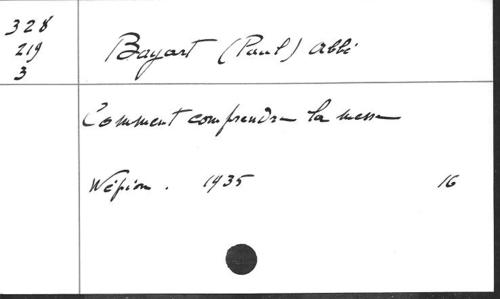 328
219
3
Bayart (Paul) abbé
Comment comprendre la messe
Wépion. 1935 16